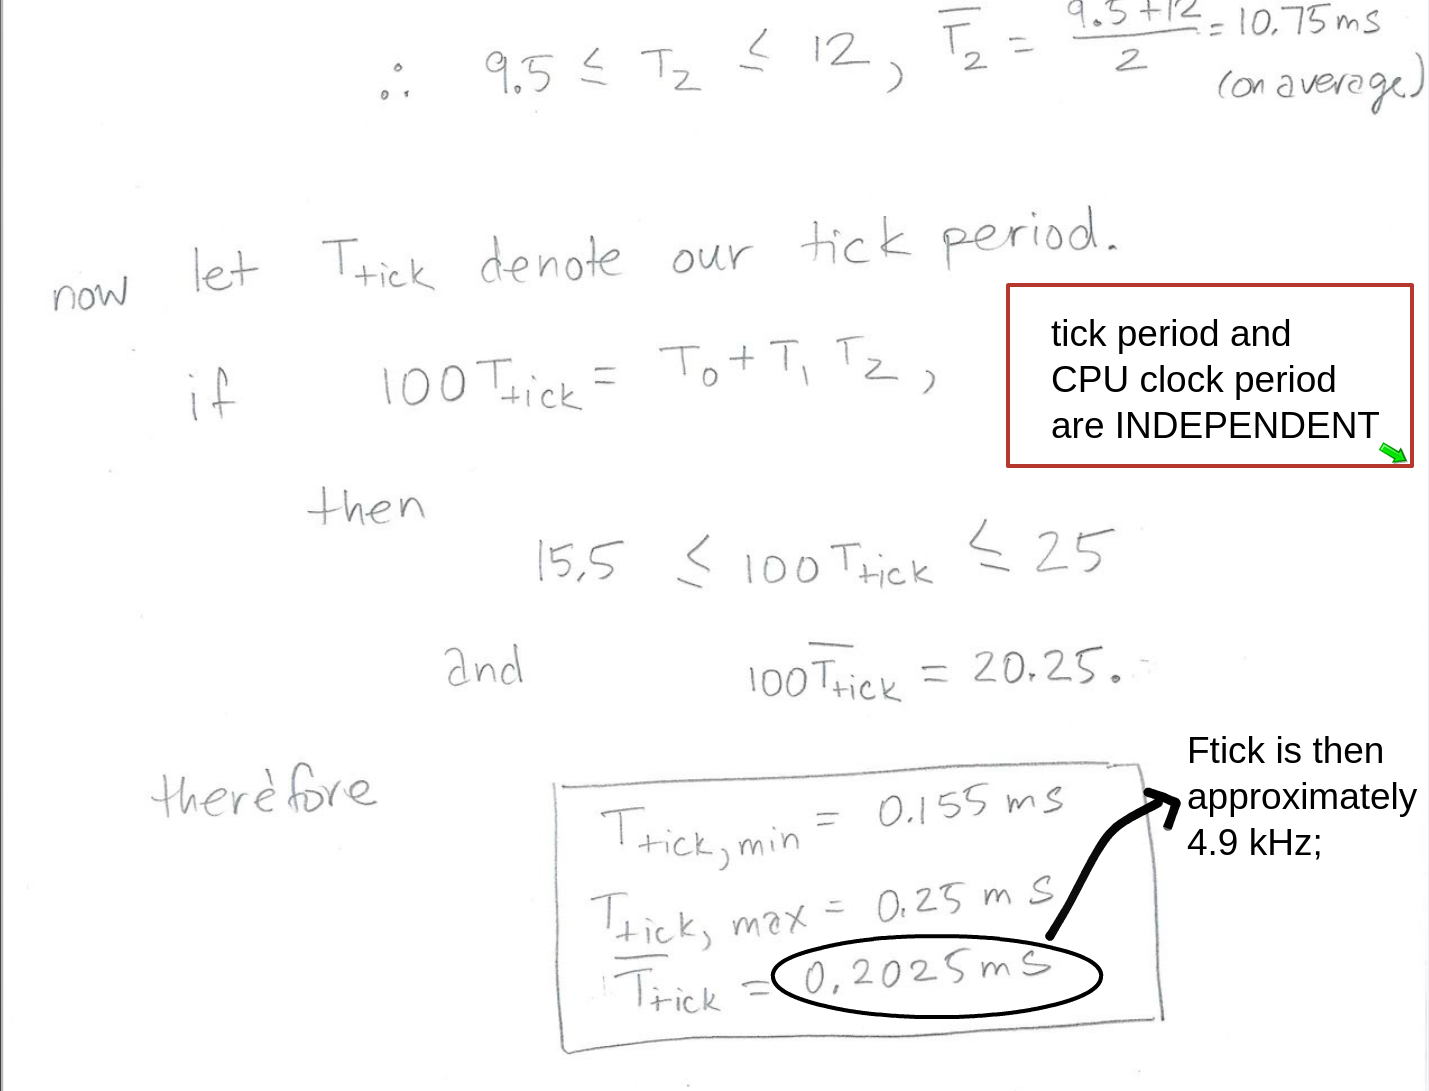 ∴ 9.5 ≤ T₂ ≤ 12, T̅₂ = (9.5+12)/2 = 10.75 ms
(on average)
now let Ttick denote our tick period.
if 100 Ttick = T₀ + T₁ T₂,
tick period and
CPU clock period
are INDEPENDENT
then
15.5 ≤ 100 Ttick ≤ 25
and 100 T̅tick = 20.25.
therefore
Ttick, min = 0.155 ms
Ttick, max = 0.25 ms
T̅tick = 0.2025 ms
Ftick is then
approximately
4.9 kHz;